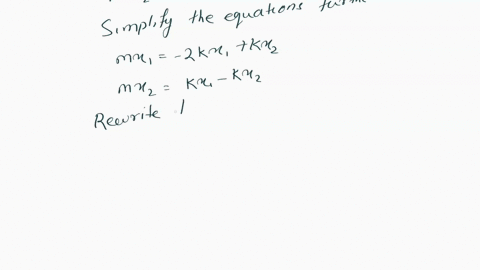 Simplify the equations
mx₁ = -2kx₁ + kx₂
mx₂ = kx₁ - kx₂
Rewrite